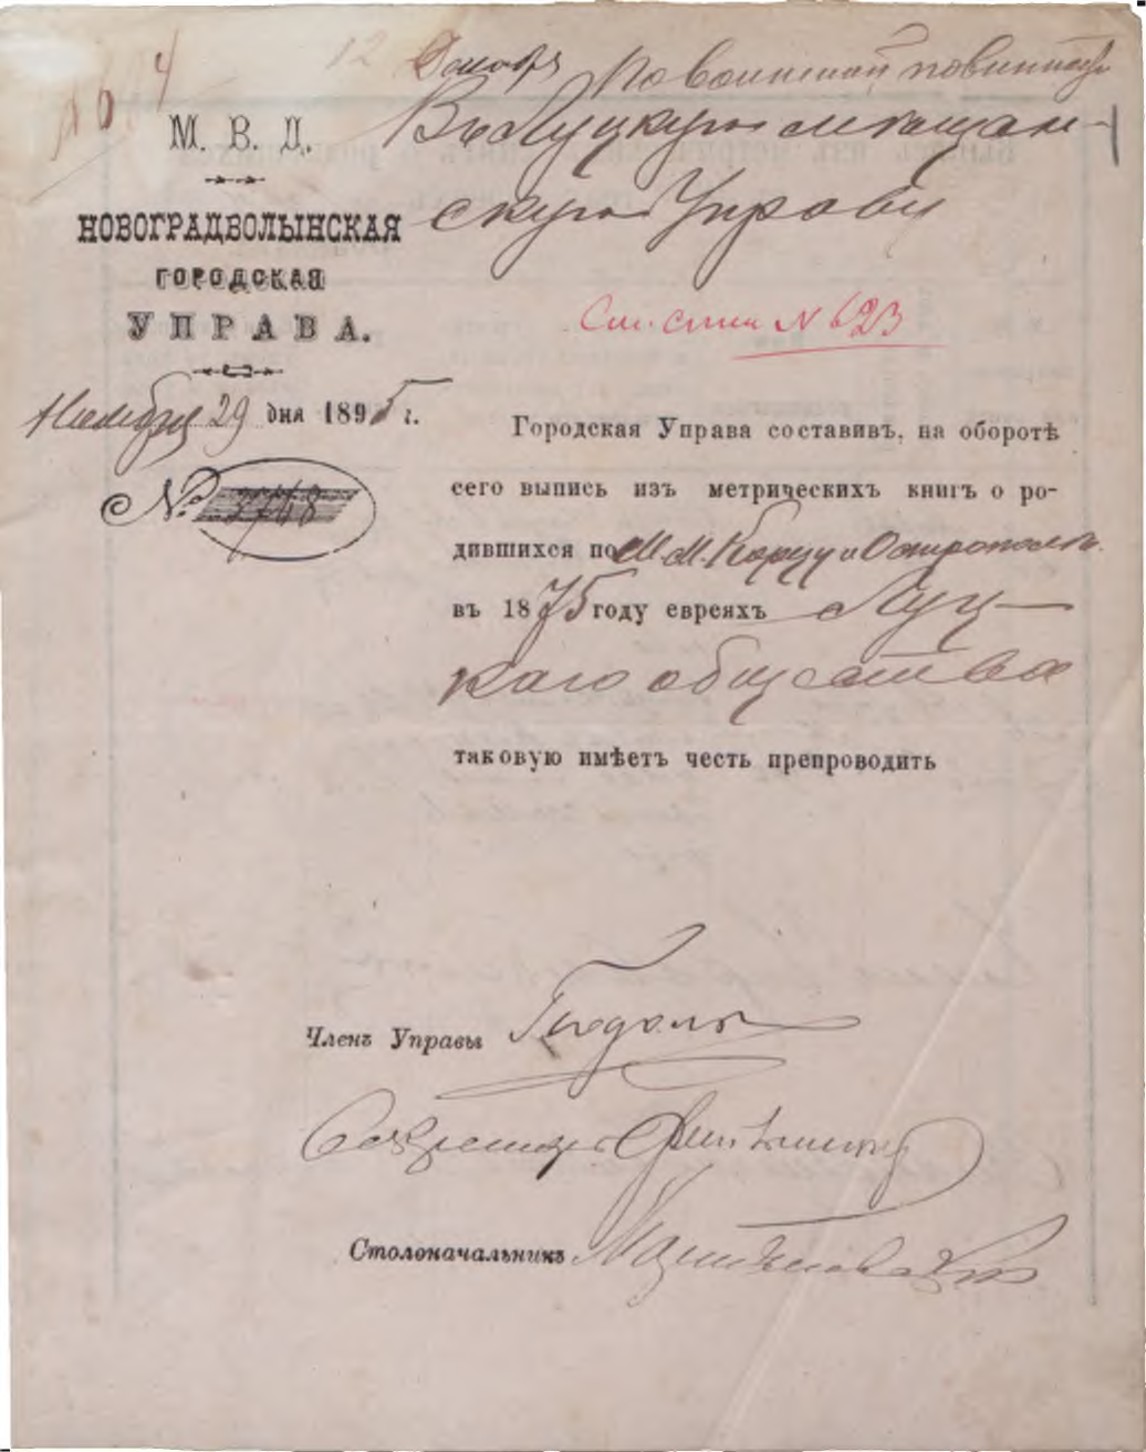 12 Декабря По воинской повинности
М. В. Д.
НОВОГРАДВОЛЫНСКАЯ
ГОРОДСКАЯ
УПРАВА.
Ноября 29 дня 1895 г.
№ 2748
Въ Луцкую мѣщан-
скую Управу
См. спис N 623
Городская Управа составивъ, на оборотѣ
сего выпись изъ метрическихъ книгъ о ро-
дившихся по М.М. Корцу и Острополю
въ 1875 году евреяхъ Луц-
каго общества
таковую имѣетъ честь препроводить
Членъ Управы
Секретарь
Столоначальникъ